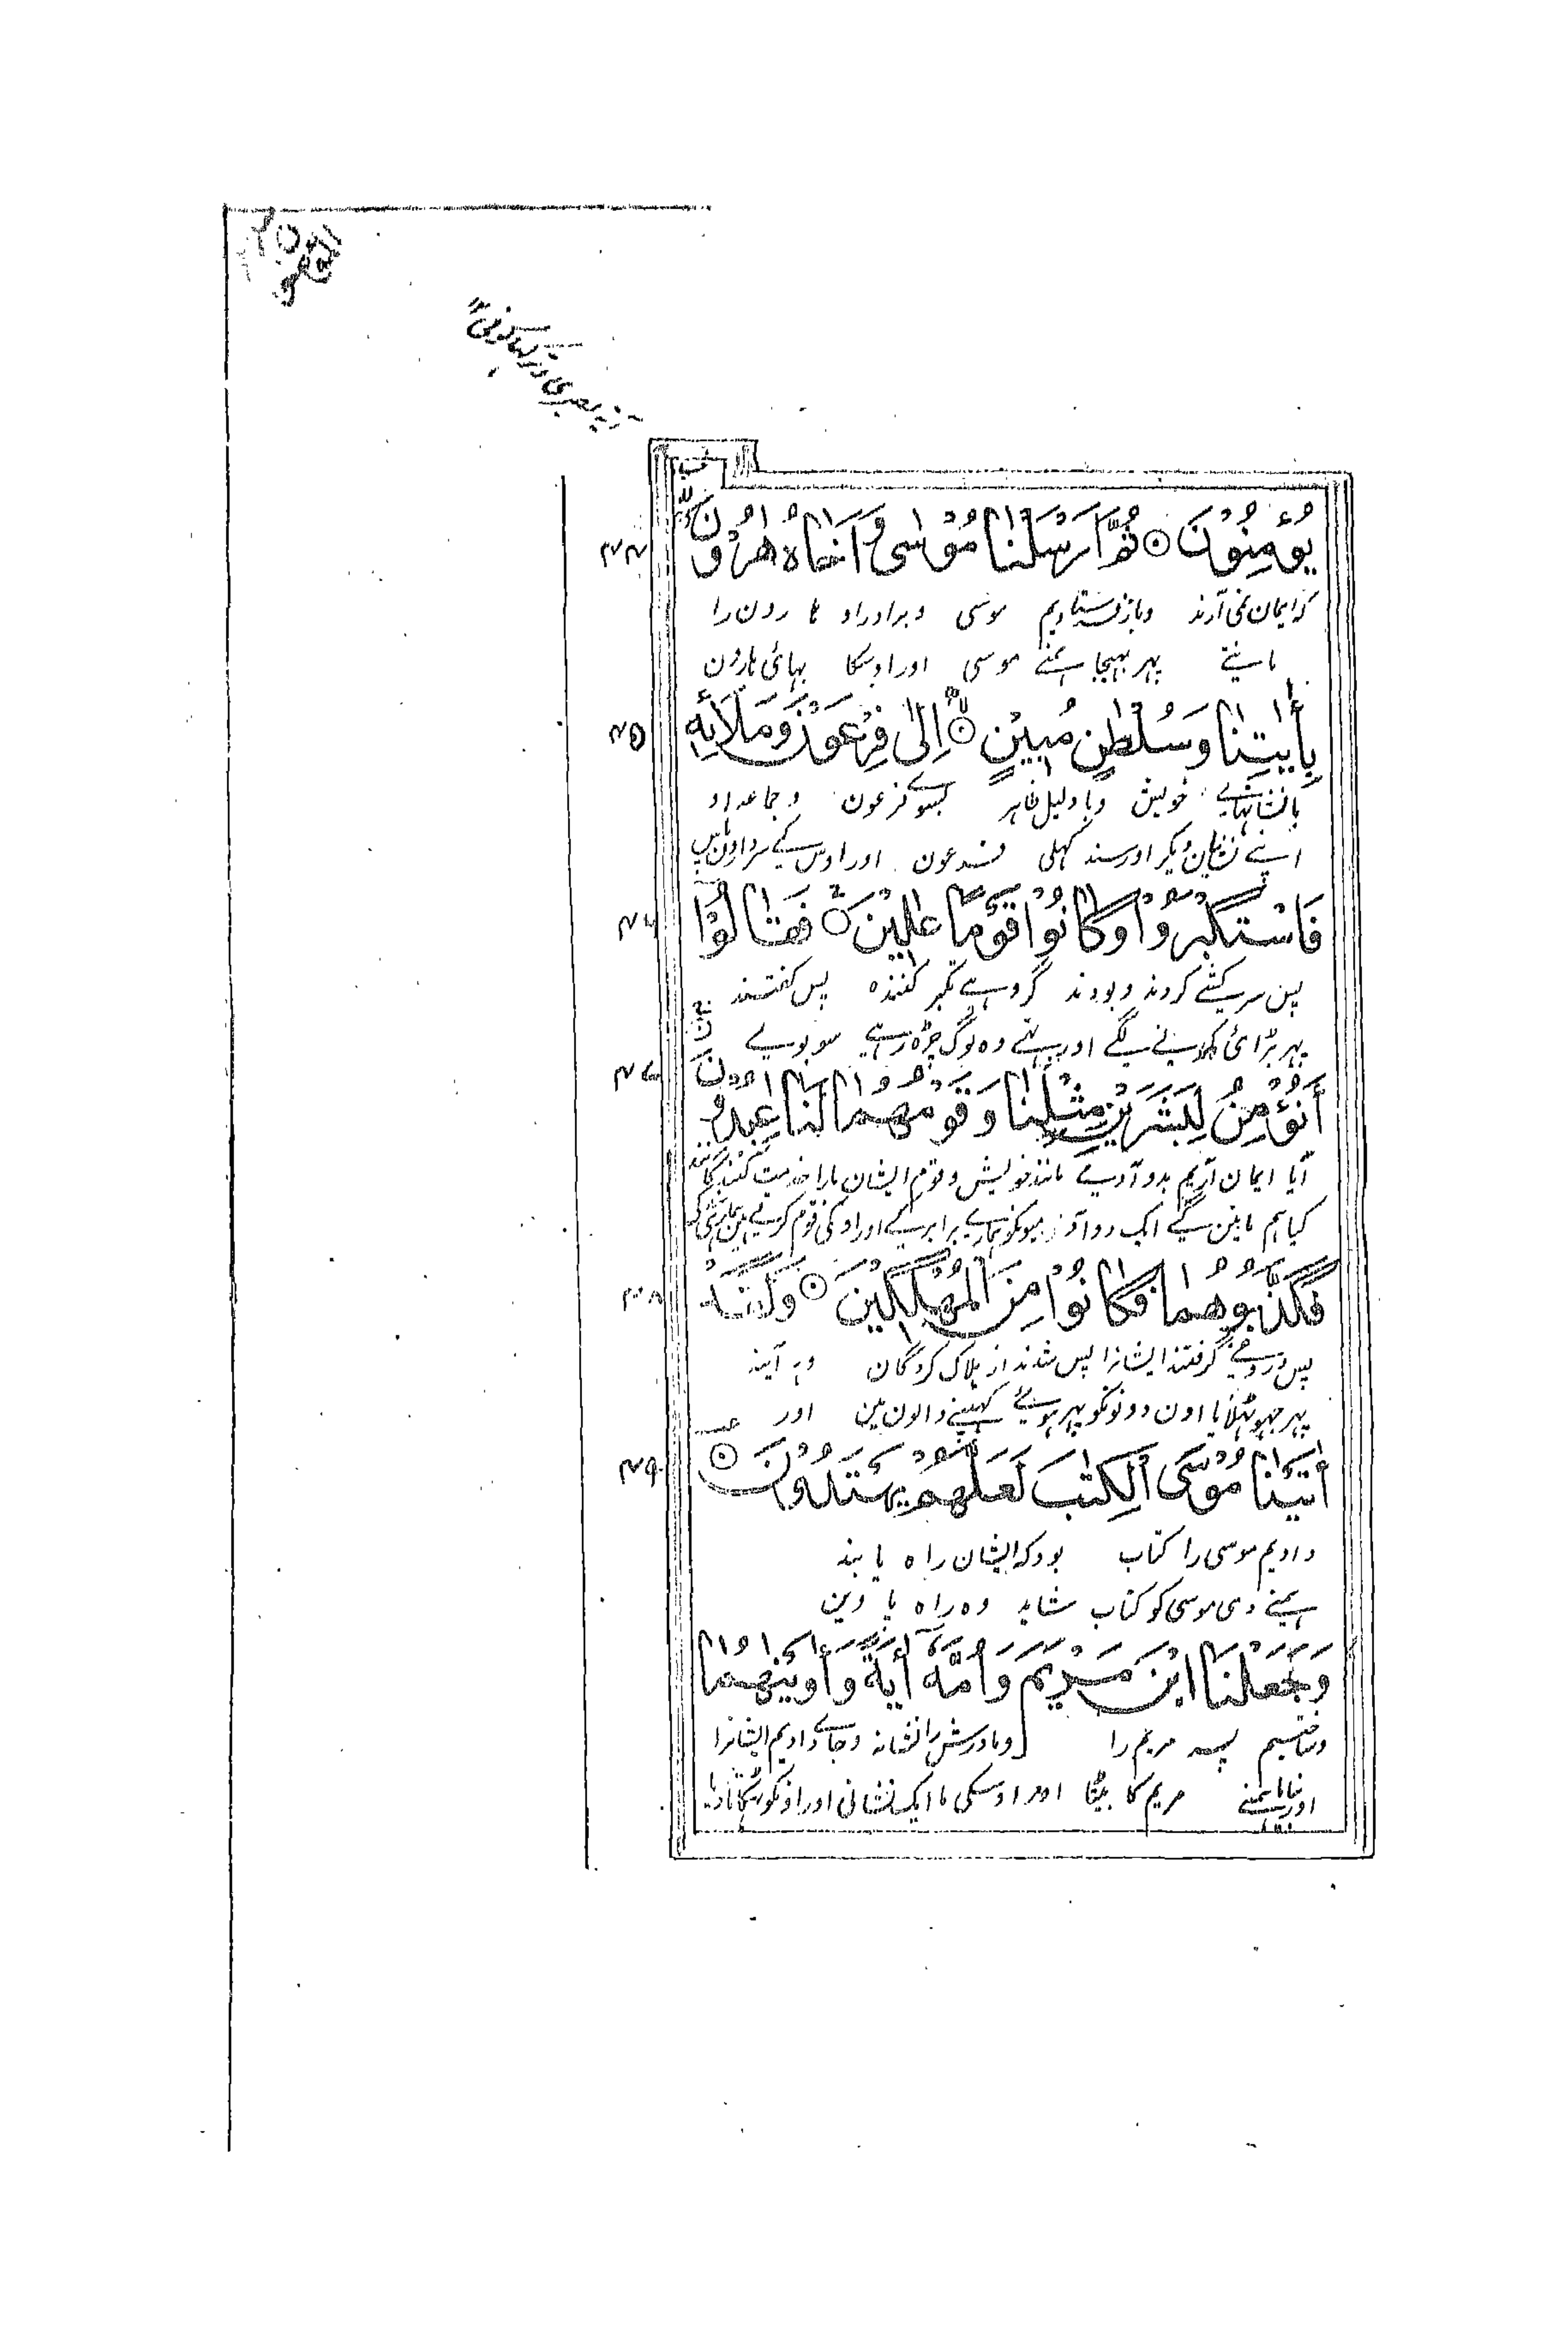 يُؤْمِنُوْنَ ۝ ثُمَّ اَرْسَلْنَا مُوْسٰى وَاَخَاهُ هٰرُوْنَ
۴۴
که ایمان نمی آرند وباز فرستادیم موسی وبرادراو ها رون را
مانتے پہر بہیجا ہمنے موسی اوراوسکا بہائی ہارون
بِاٰيٰتِنَا وَسُلْطٰنٍ مُّبِيْنٍ ۝ اِلٰى فِرْعَوْنَ وَمَلَا۟ئِهٖ
۴۵
بانشانیہاے خویش وبا دلیل ظاہر بسوے فرعون و جماعہ او
اپنے نشانیان دیکر اور سند کہلی فرعون اور اوس کے سردارون پاس
فَاسْتَكْبَرُوْا وَكَانُوْا قَوْمًا عٰلِيْنَ ۝ فَقَالُوْٓا
۴۶
پس سرکشے کردند وبودند گروہے تکبر کنندہ پس گفتند
پہر بڑائی کرنے لگے اور تہے وہ لوگ چڑہ رہے سو بولے
اَنُؤْمِنُ لِبَشَرَيْنِ مِثْلِنَا وَقَوْمُهُمَا لَنَا عٰبِدُوْنَ
۴۷
آیا ایمان آریم بدو آدمے مانند خویش وقوم ایشان مارا خدمت کنندگانند
کیا ہم مانین گے ایک دو آدمیونکو ہمارے برابر کے اور اونکی قوم کرتے ہین ہماری بندگی
فَكَذَّبُوْهُمَا فَكَانُوْا مِنَ الْمُهْلَكِيْنَ ۝ وَلَقَدْ
۴۸
پس دروغے گرفتند ایشانرا پس شدند از ہلاک کردگان وہر آینہ
پہر جہوٹہلایا اون دونونکو پہر ہوے کہپنے والون مین اور
اٰتَيْنَا مُوْسَى الْكِتٰبَ لَعَلَّهُمْ يَهْتَدُوْنَ ۝
۴۹
دادیم موسی را کتاب بودکہ ایشان راہ یابند
ہمنے دی موسی کو کتاب شاید وہ راہ پا وین
وَجَعَلْنَا ابْنَ مَرْيَمَ وَاُمَّهٗٓ اٰيَةً وَّاٰوَيْنٰهُمَا
وساختیم پسر مریم را ومادرش را نشانہ وجاے دادیم ایشانرا
اور بنایا ہمنے مریم کا بیٹا اور اوسکی ما ایک نشانی اور اونکو ٹہکانا دیا